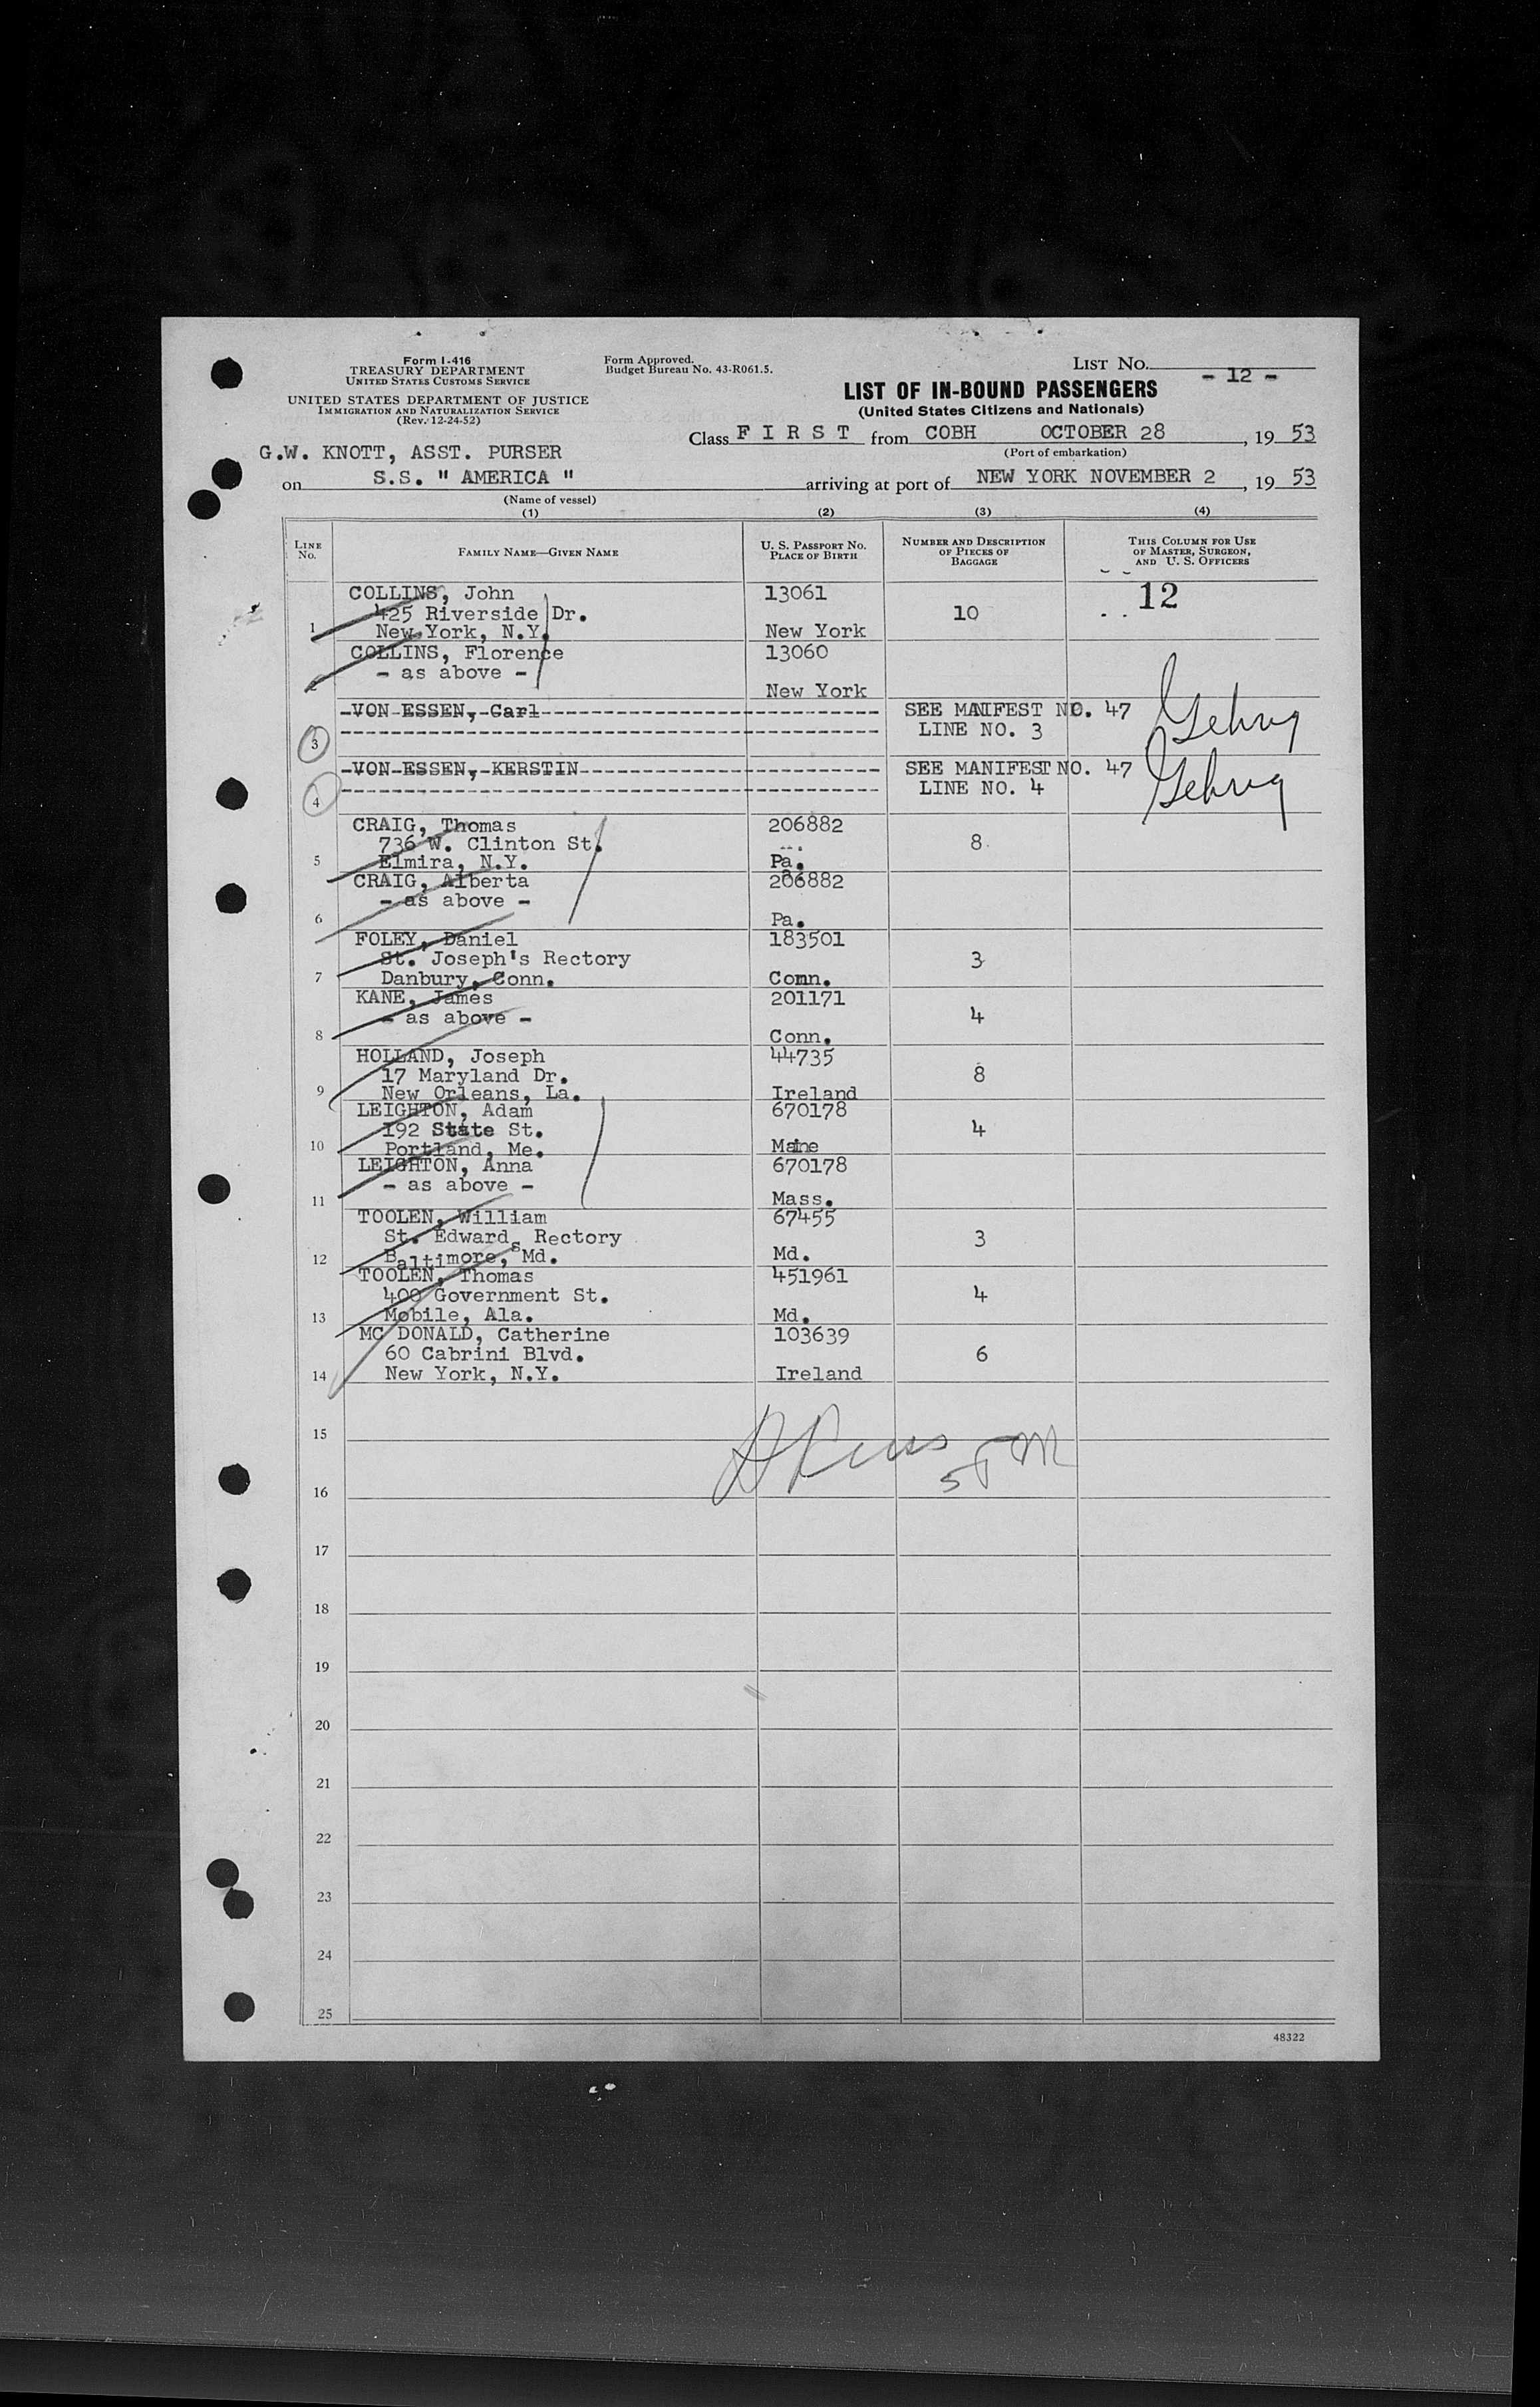 Form I-416
TREASURY DEPARTMENT
UNITED STATES CUSTOMS SERVICE
UNITED STATES DEPARTMENT OF JUSTICE
IMMIGRATION AND NATURALIZATION SERVICE
(Rev. 12-24-52)
Form Approved.
Budget Bureau No. 43-R061.5.
LIST NO. - 12 -
LIST OF IN-BOUND PASSENGERS
(United States Citizens and Nationals)
Class F I R S T from COBH OCTOBER 28, 19 53
(Port of embarkation)
G.W. KNOTT, ASST. PURSER
on S.S. " AMERICA " arriving at port of NEW YORK NOVEMBER 2, 19 53
(Name of vessel)
(1) (2) (3) (4)
LINE No. FAMILY NAME—GIVEN NAME U. S. PASSPORT NO. PLACE OF BIRTH NUMBER AND DESCRIPTION OF PIECES OF BAGGAGE THIS COLUMN FOR USE OF MASTER, SURGEON, AND U. S. OFFICERS
COLLINS, John 13061 12
425 Riverside Dr. 10
1 New York, N.Y. New York
COLLINS, Florence 13060
- as above -
2 New York
VON ESSEN, Carl SEE MANIFEST NO. 47 Gehrig
3 LINE NO. 3
VON ESSEN, KERSTIN SEE MANIFEST NO. 47 Gehrig
4 LINE NO. 4
CRAIG, Thomas 206882
736 W. Clinton St. 8
5 Elmira, N.Y. Pa.
CRAIG, Alberta 206882
- as above -
6 Pa.
FOLEY, Daniel 183501
St. Joseph's Rectory 3
7 Danbury, Conn. Conn.
KANE, James 201171
- as above - 4
8 Conn.
HOLLAND, Joseph 44735
17 Maryland Dr. 8
9 New Orleans, La. Ireland
LEIGHTON, Adam 670178
192 State St. 4
10 Portland, Me. Maine
LEIGHTON, Anna 670178
- as above -
11 Mass.
TOOLEN, William 67455
St. Edwards Rectory 3
12 Baltimore, Md. Md.
TOOLEN, Thomas 451961
400 Government St. 4
13 Mobile, Ala. Md.
MC DONALD, Catherine 103639
60 Cabrini Blvd. 6
14 New York, N.Y. Ireland
15
16
17
18
19
20
21
22
23
24
25
48322